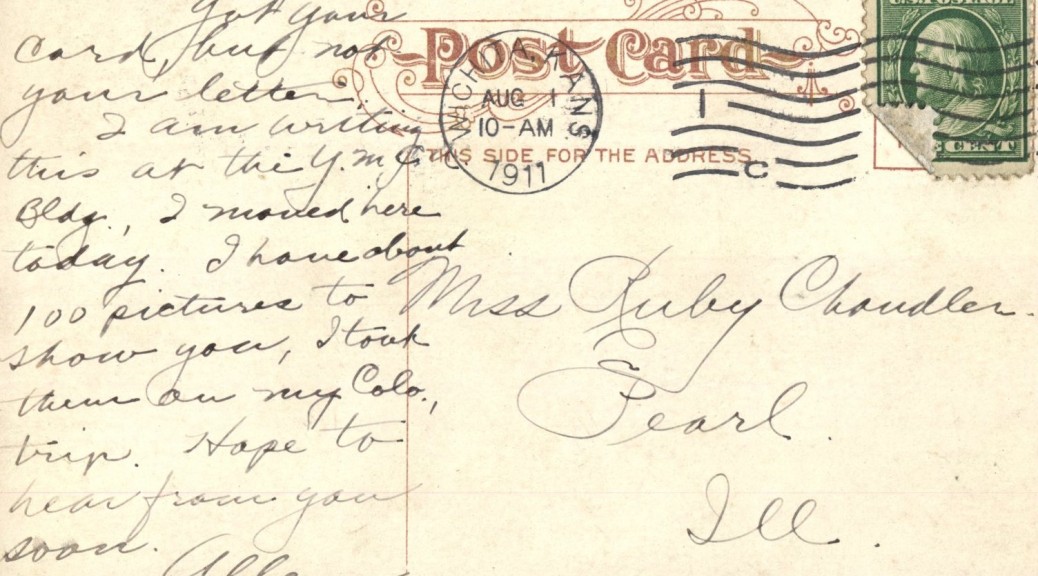 Got your
card, but not
your letter.
I am writing
this at the Y.M.C.
Bldg., I moved here
today. I have about
100 pictures to
show you, I took
them on my Colo.,
trip. Hope to
hear from you
soon.
Post Card
THIS SIDE FOR THE ADDRESS
WICHITA, KANS.
AUG 1
10-AM
1911
1
C
U.S. POSTAGE
CENT
Miss Ruby Chandler.
Pearl.
Ill.